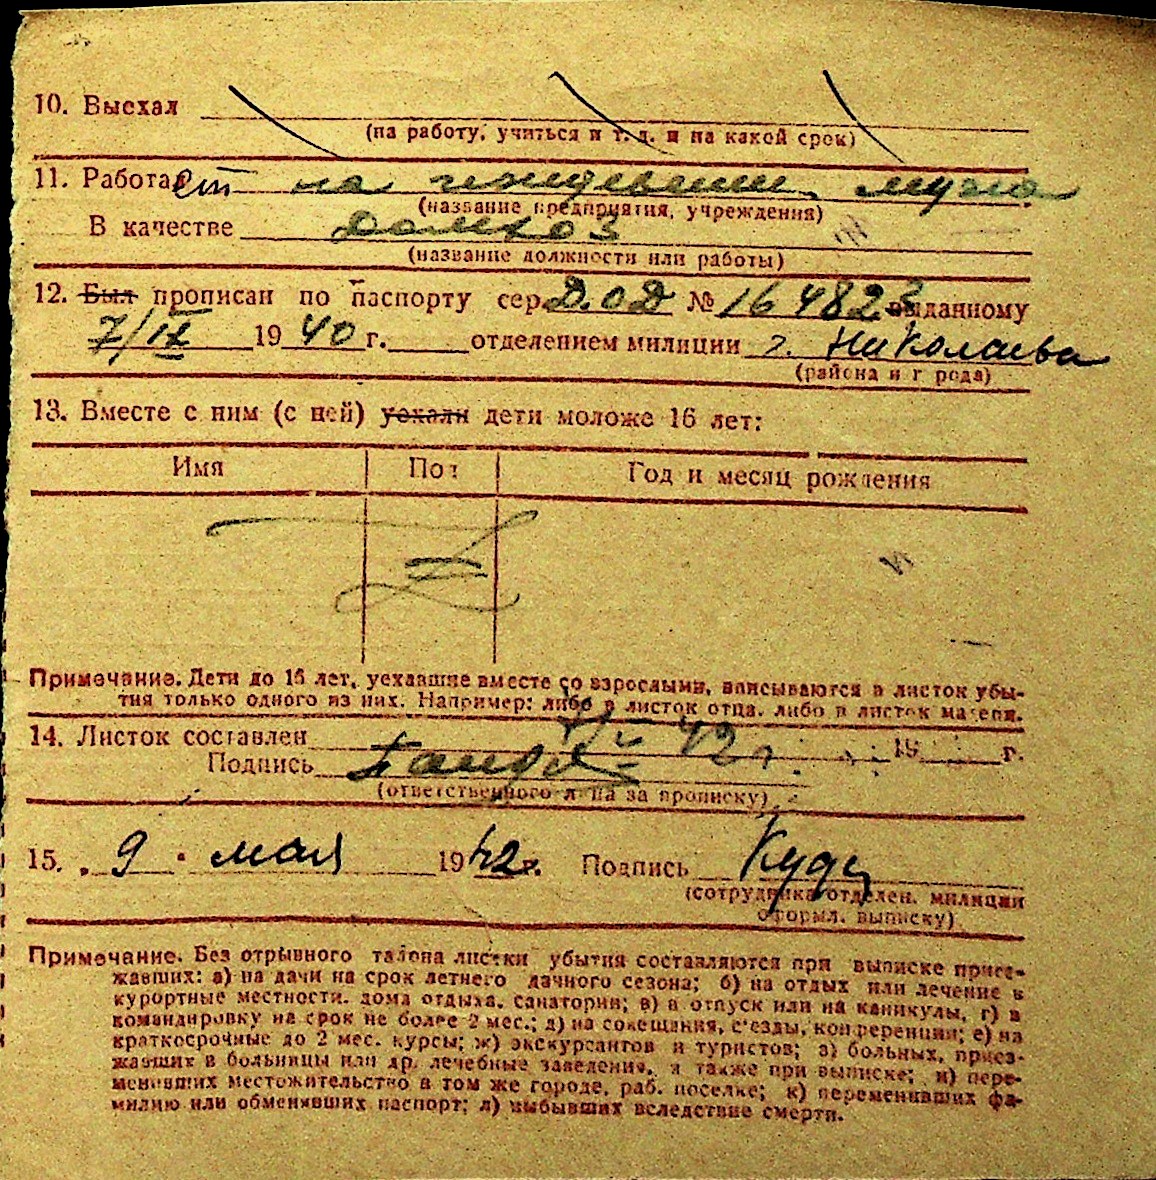 10. Выехал
(на работу, учиться и т. д. и на какой срок)
11. Работает на иждевении мужа
(название предприятия, учреждения)
В качестве домхоз
(название должности или работы)
12. Был прописан по паспорту сер. ДОД № 164823 выданному
7/IX 1940 г. отделением милиции г. Николаева
(района и города)
13. Вместе с ним (с ней) уехали дети моложе 16 лет:
Имя Пол Год и месяц рождения
Z
Примечание. Дети до 16 лет, уехавшие вместе со взрослыми, вписываются в листок убы-
тия только одного из них. Например: либо в листок отца, либо в листок матери.
14. Листок составлен 42 г. 19 г.
Подпись
(ответственного лица за прописку)
15. „ 9 " мая 1942 г. Подпись
(сотрудника отделен. милиции
оформл. выписку)
Примечание. Без отрывного талона листки убытия составляются при выписке приез-
жавших: а) на дачи на срок летнего дачного сезона; б) на отдых или лечение в
курортные местности, дома отдыха, санатории; в) в отпуск или на каникулы, г) в
командировку на срок не более 2 мес.; д) на совещания, съезды, конференции; е) на
краткосрочные до 2 мес. курсы; ж) экскурсантов и туристов; з) больных, приез-
жавших в больницы или др. лечебные заведения, а также при выписке; и) пере-
менивших местожительство в том же городе, раб. поселке; к) переменивших фа-
милию или обменявших паспорт; л) выбывших вследствие смерти.